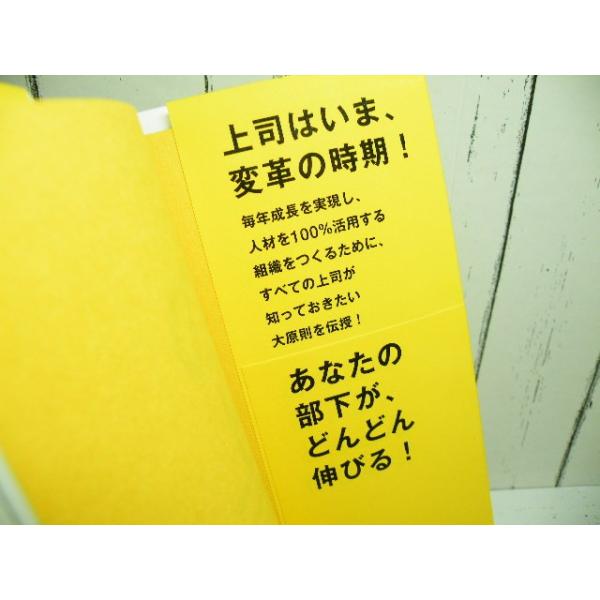 上司はいま、
変革の時期！
毎年成長を実現し、
人材を100%活用する
組織をつくるために、
すべての上司が
知っておきたい
大原則を伝授！
あなたの
部下が、
どんどん
伸びる！